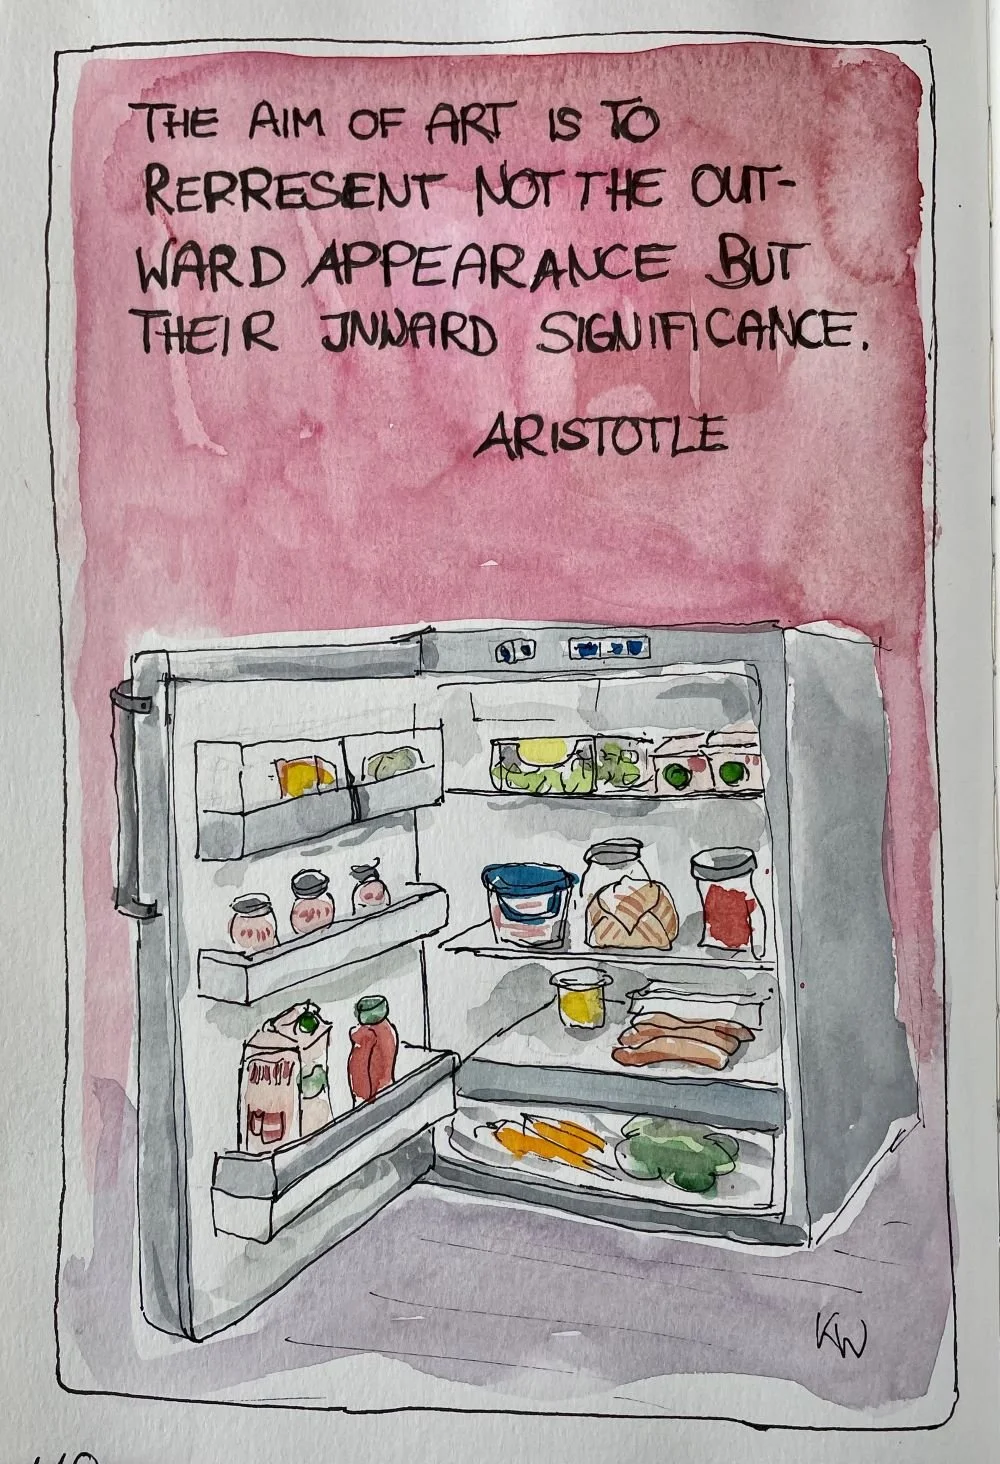 THE AIM OF ART IS TO
REPRESENT NOT THE OUT-
WARD APPEARANCE BUT
THEIR INWARD SIGNIFICANCE.
ARISTOTLE
KW